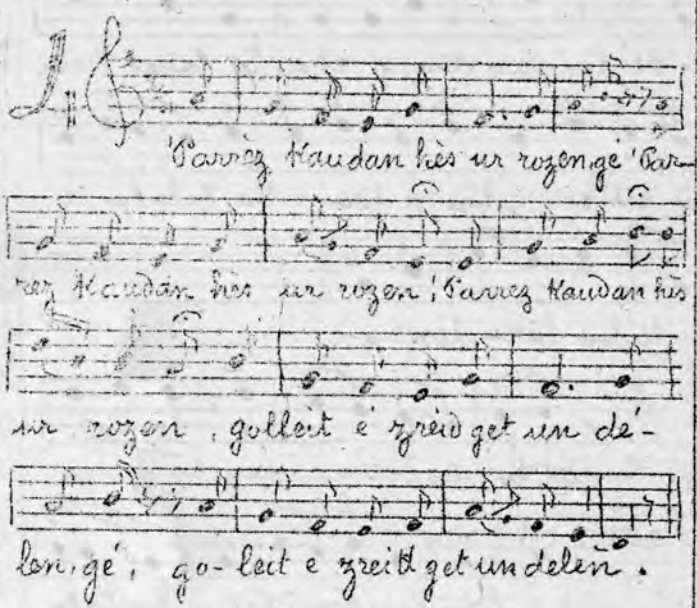 Parréz Kaudan hès ur rozen, gé Par-
rez Kaudan hès ur rozen, Parrez Kaudan hès
ur rozen, golleit é zreid get un dé-
len, gé, go-leit e zreid get un delen.